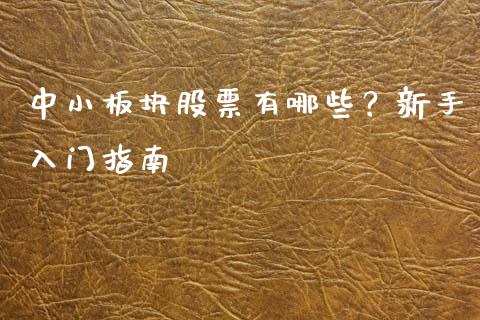 中小板块股票有哪些？新手
入门指南